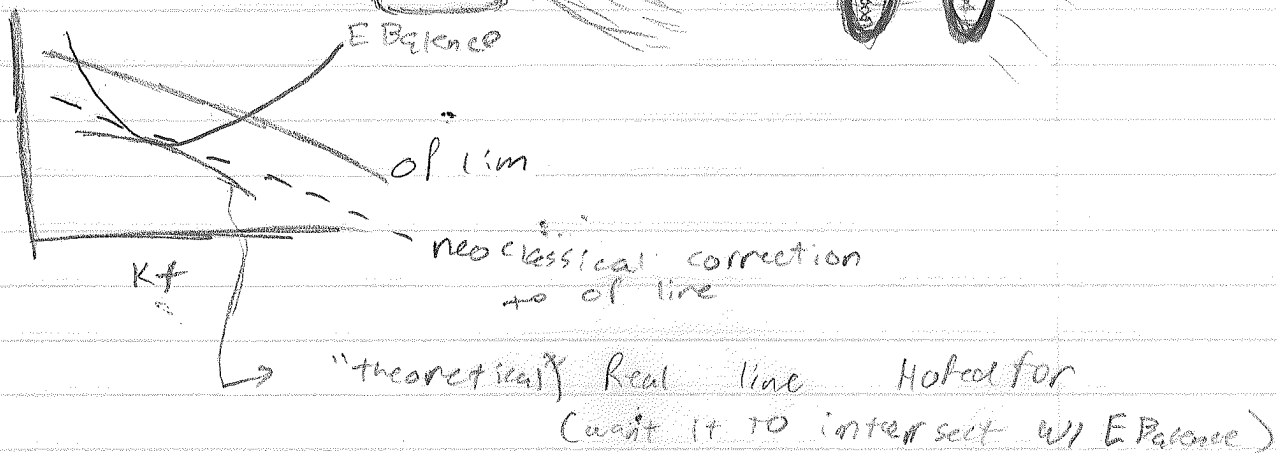 E Balence
of lim
neoclassical correction
to of line
Kf
"theoretical" Real line Hoped for
(want it to intersect w/ E Balence)